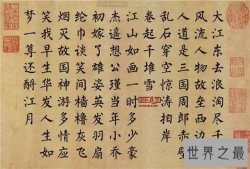 大江东去浪淘尽
风流人物故垒西边
人道是三国周郎赤壁
乱石穿空惊涛拍岸
卷起千堆雪
江山如画一时多少豪
杰遥想公瑾当年小乔
初嫁了雄姿英发羽扇
纶巾谈笑间樯橹灰飞
烟灭故国神游多情应
笑我早生华发人生如
梦一尊还酹江月
世界之最